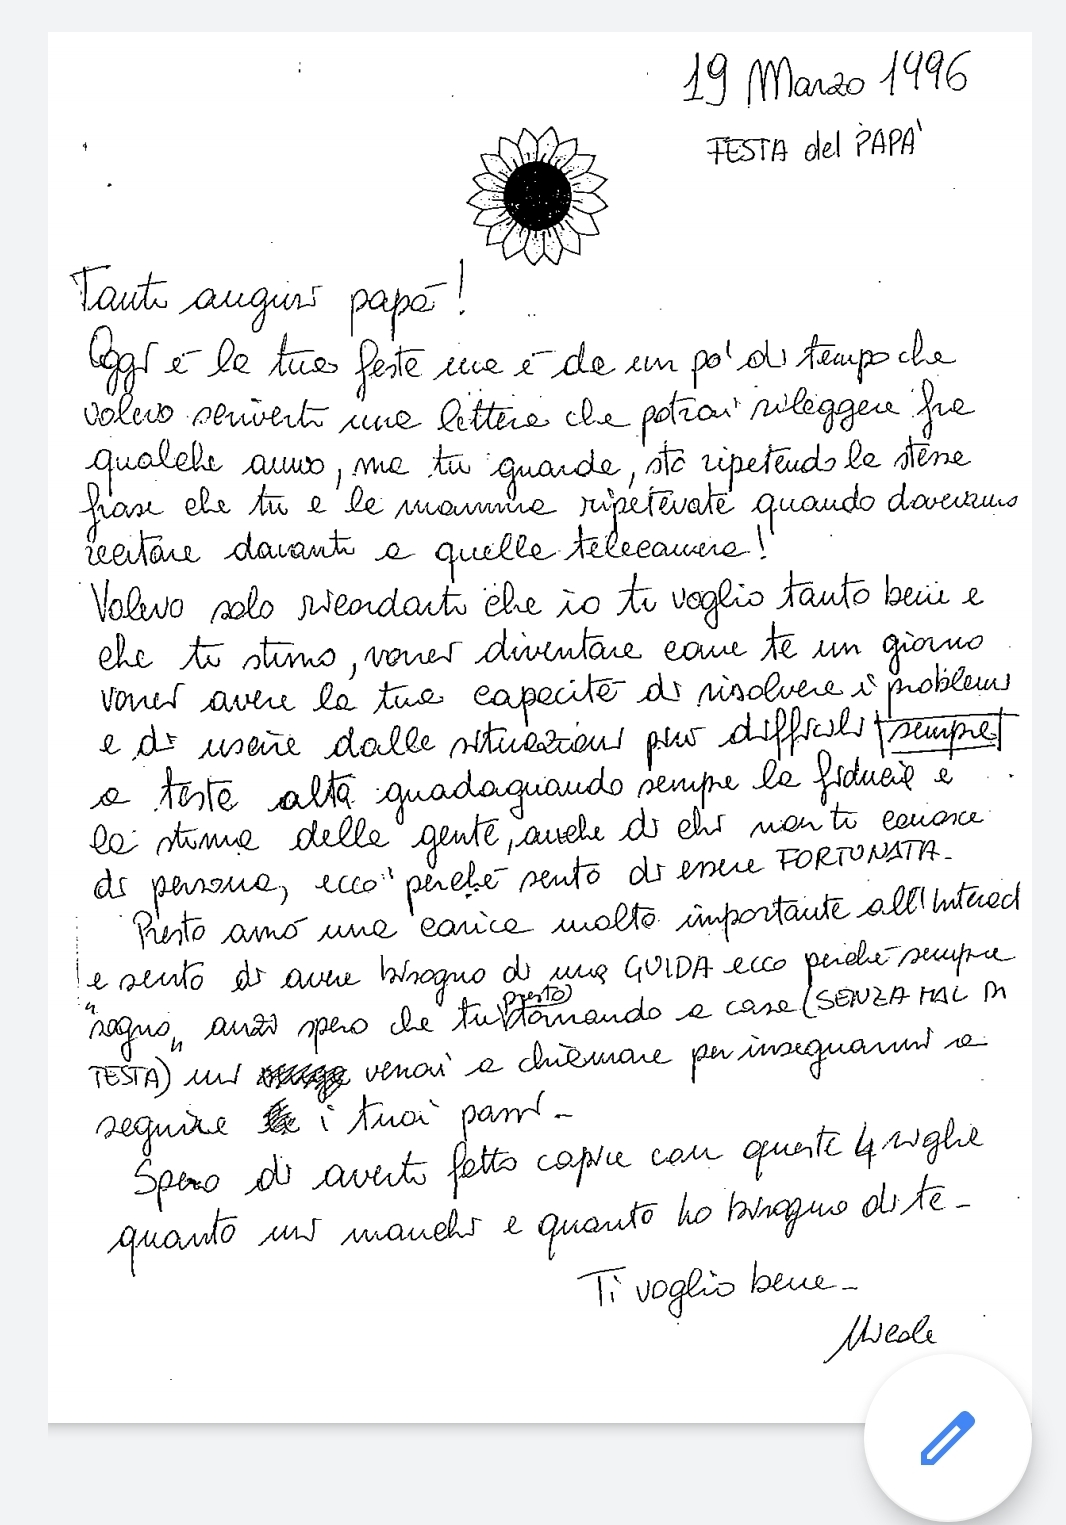 19 Marzo 1996
FESTA del PAPA'
Tanti auguri papà!
Oggi è la tua festa ma è da un po' di tempo che
volevo scriverti una lettera che potrai rileggere fra
qualche anno, ma tu guarda, sto ripetendo la stessa
frase che tu e la mamma ripetevate quando dovevamo
recitare davanti a quella telecamera!
Volevo solo ricordarti che io ti voglio tanto bene e
che ti stimo, vorrei diventare come te un giorno
vorrei avere la tua capacità di risolvere i problemi
e di uscire dalle situazioni più difficili sempre
a testa alta guadagnando sempre la fiducia e
la stima della gente, anche di chi non ti conosce
di persona, ecco perché sento di essere FORTUNATA-
Presto avrò una carica molto importante all'Interact
e sento di avere bisogno di una GUIDA ecco perché sempre
"sogno" anzi spero che tu presto tornando a casa (SENZA MAL DI
TESTA) mi verrai a chiamare per insegnarmi a
seguire i tuoi passi-
Spero di averti fatto capire con queste 4 righe
quanto mi manchi e quanto ho bisogno di te-
Ti voglio bene-
Nicole